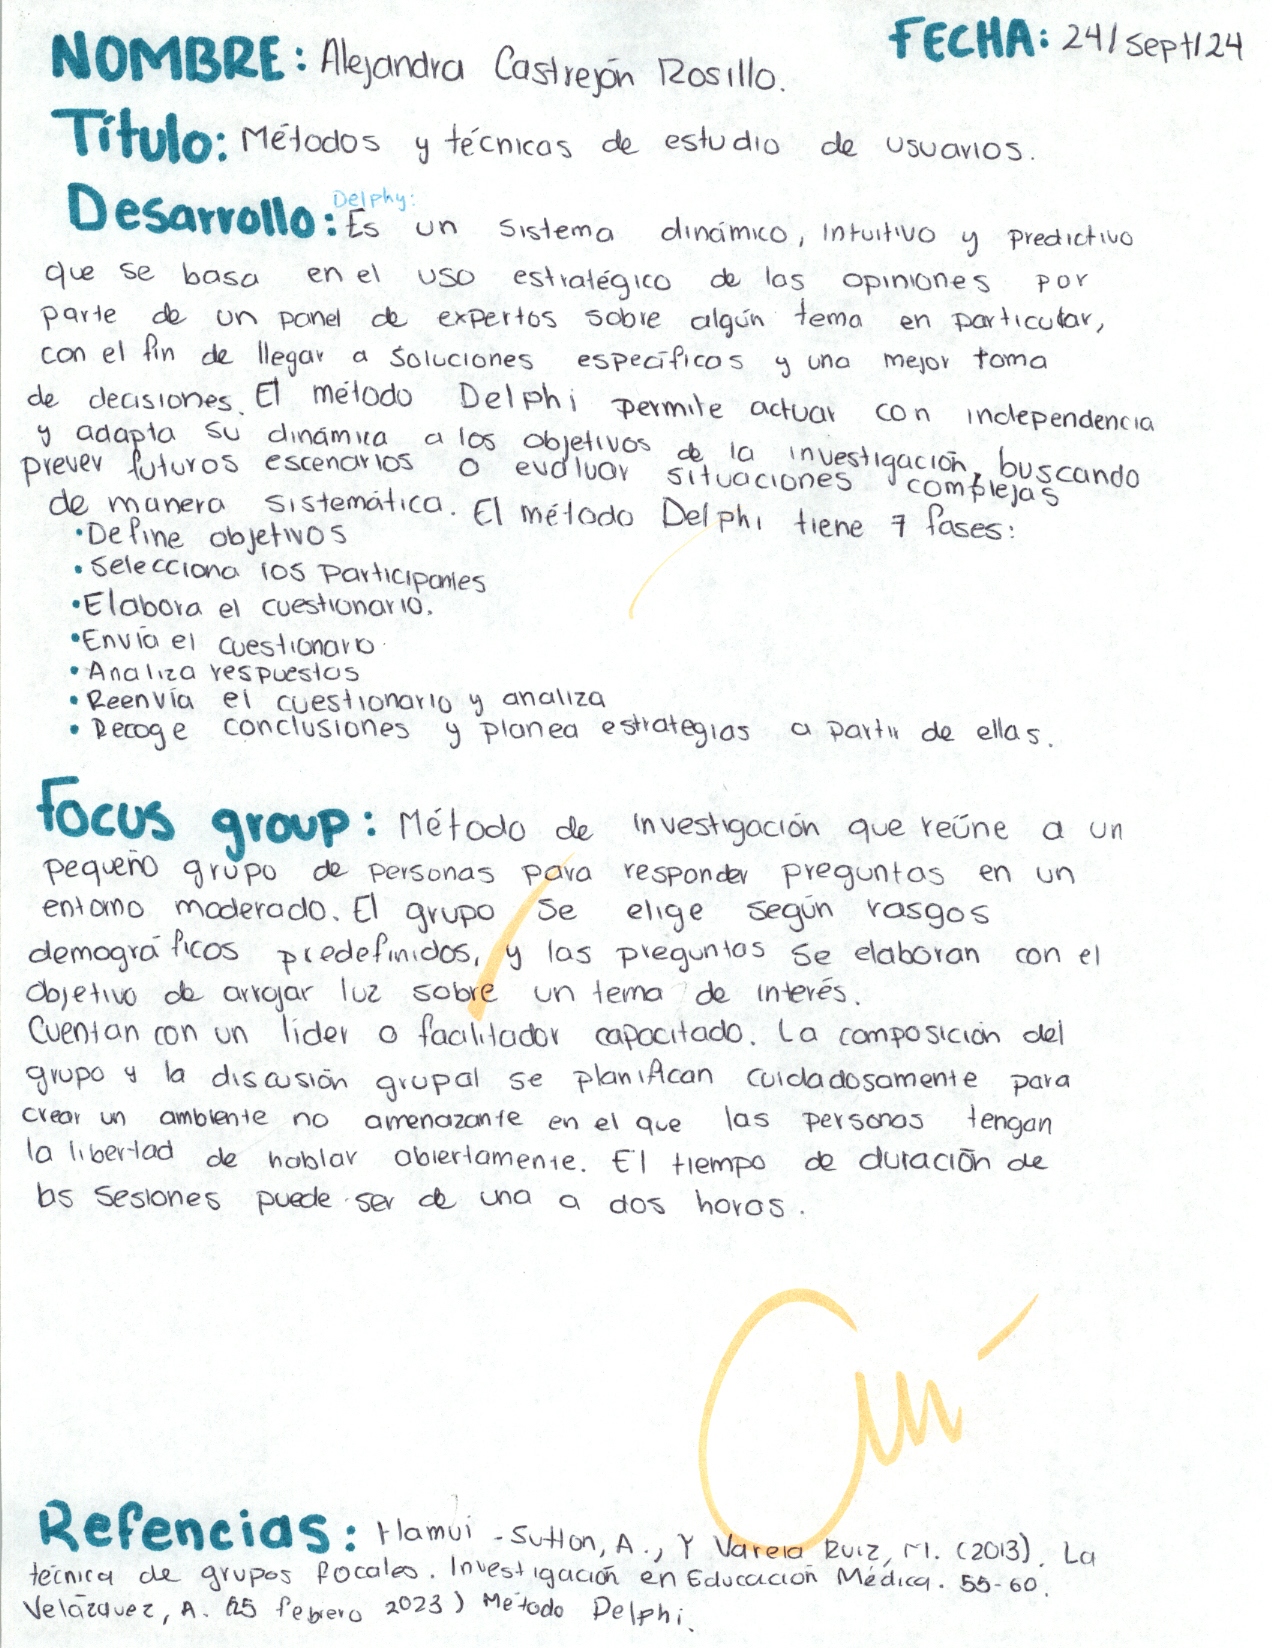 NOMBRE: Alejandra Castrejón Rosillo.
FECHA: 24/Sept/24
Título: Métodos y técnicas de estudio de usuarios.
Delphy:
Desarrollo: Es un sistema dinámico, intuitivo y predictivo
que se basa en el uso estratégico de las opiniones por
parte de un panel de expertos sobre algún tema en particular,
con el fin de llegar a soluciones específicas y una mejor toma
de decisiones. El método Delphi permite actuar con independencia
y adapta su dinámica a los objetivos de la investigación, buscando
prever futuros escenarios o evaluar situaciones complejas
de manera sistemática. El método Delphi tiene 7 fases:
• Define objetivos
• Selecciona los participantes
• Elabora el cuestionario.
• Envía el cuestionario.
• Analiza respuestas
• Reenvía el cuestionario y analiza
• Recoge conclusiones y planea estrategias a partir de ellas.
Focus group: Método de investigación que reúne a un
pequeño grupo de personas para responder preguntas en un
entorno moderado. El grupo se elige según rasgos
demográficos predefinidos, y las preguntas se elaboran con el
objetivo de arrojar luz sobre un tema de interés.
Cuentan con un líder o facilitador capacitado. La composición del
grupo y la discusión grupal se planifican cuidadosamente para
crear un ambiente no amenazante en el que las personas tengan
la libertad de hablar abiertamente. El tiempo de duración de
las sesiones puede ser de una a dos horas.
Refencias: Hamui-Sutton, A., Y Varela Ruiz, M. (2013). La
técnica de grupos focales. Investigación en Educación Médica. 55-60.
Velázquez, A. (25 febrero 2023) Método Delphi.